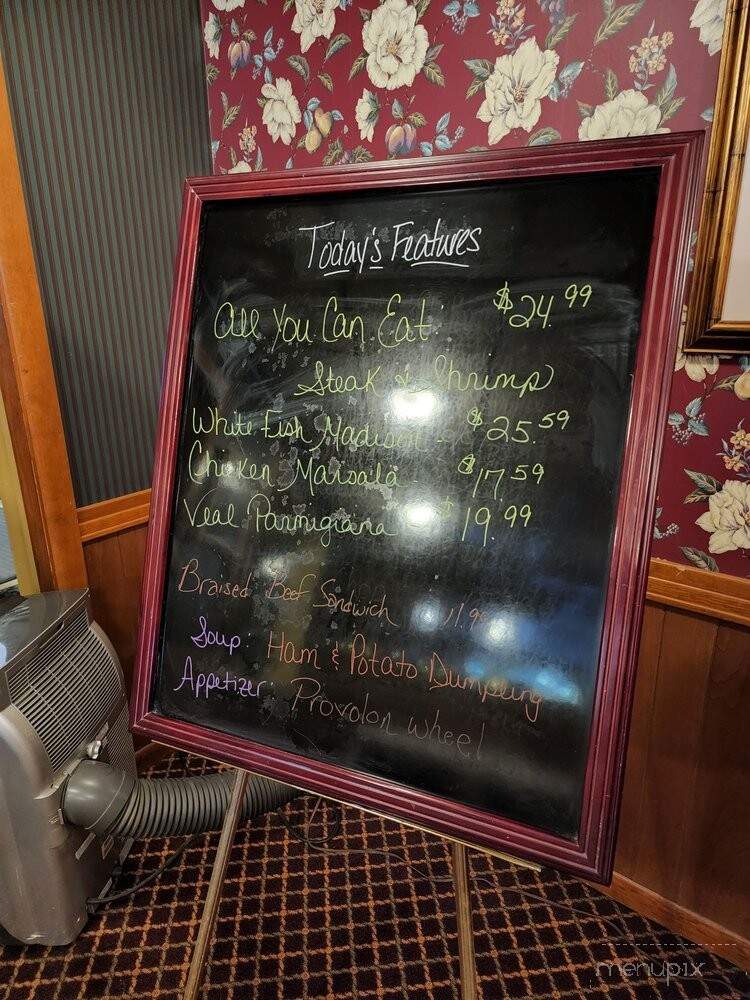 Today's Features
All You Can Eat: $24.99
Steak & Shrimp
White Fish Madison - $25.59
Chicken Marsala - $17.59
Veal Parmigiana - $19.99
Braised Beef Sandwich 11.99
Soup: Ham & Potato Dumpling
Appetizer: Provolon Wheel
menupix